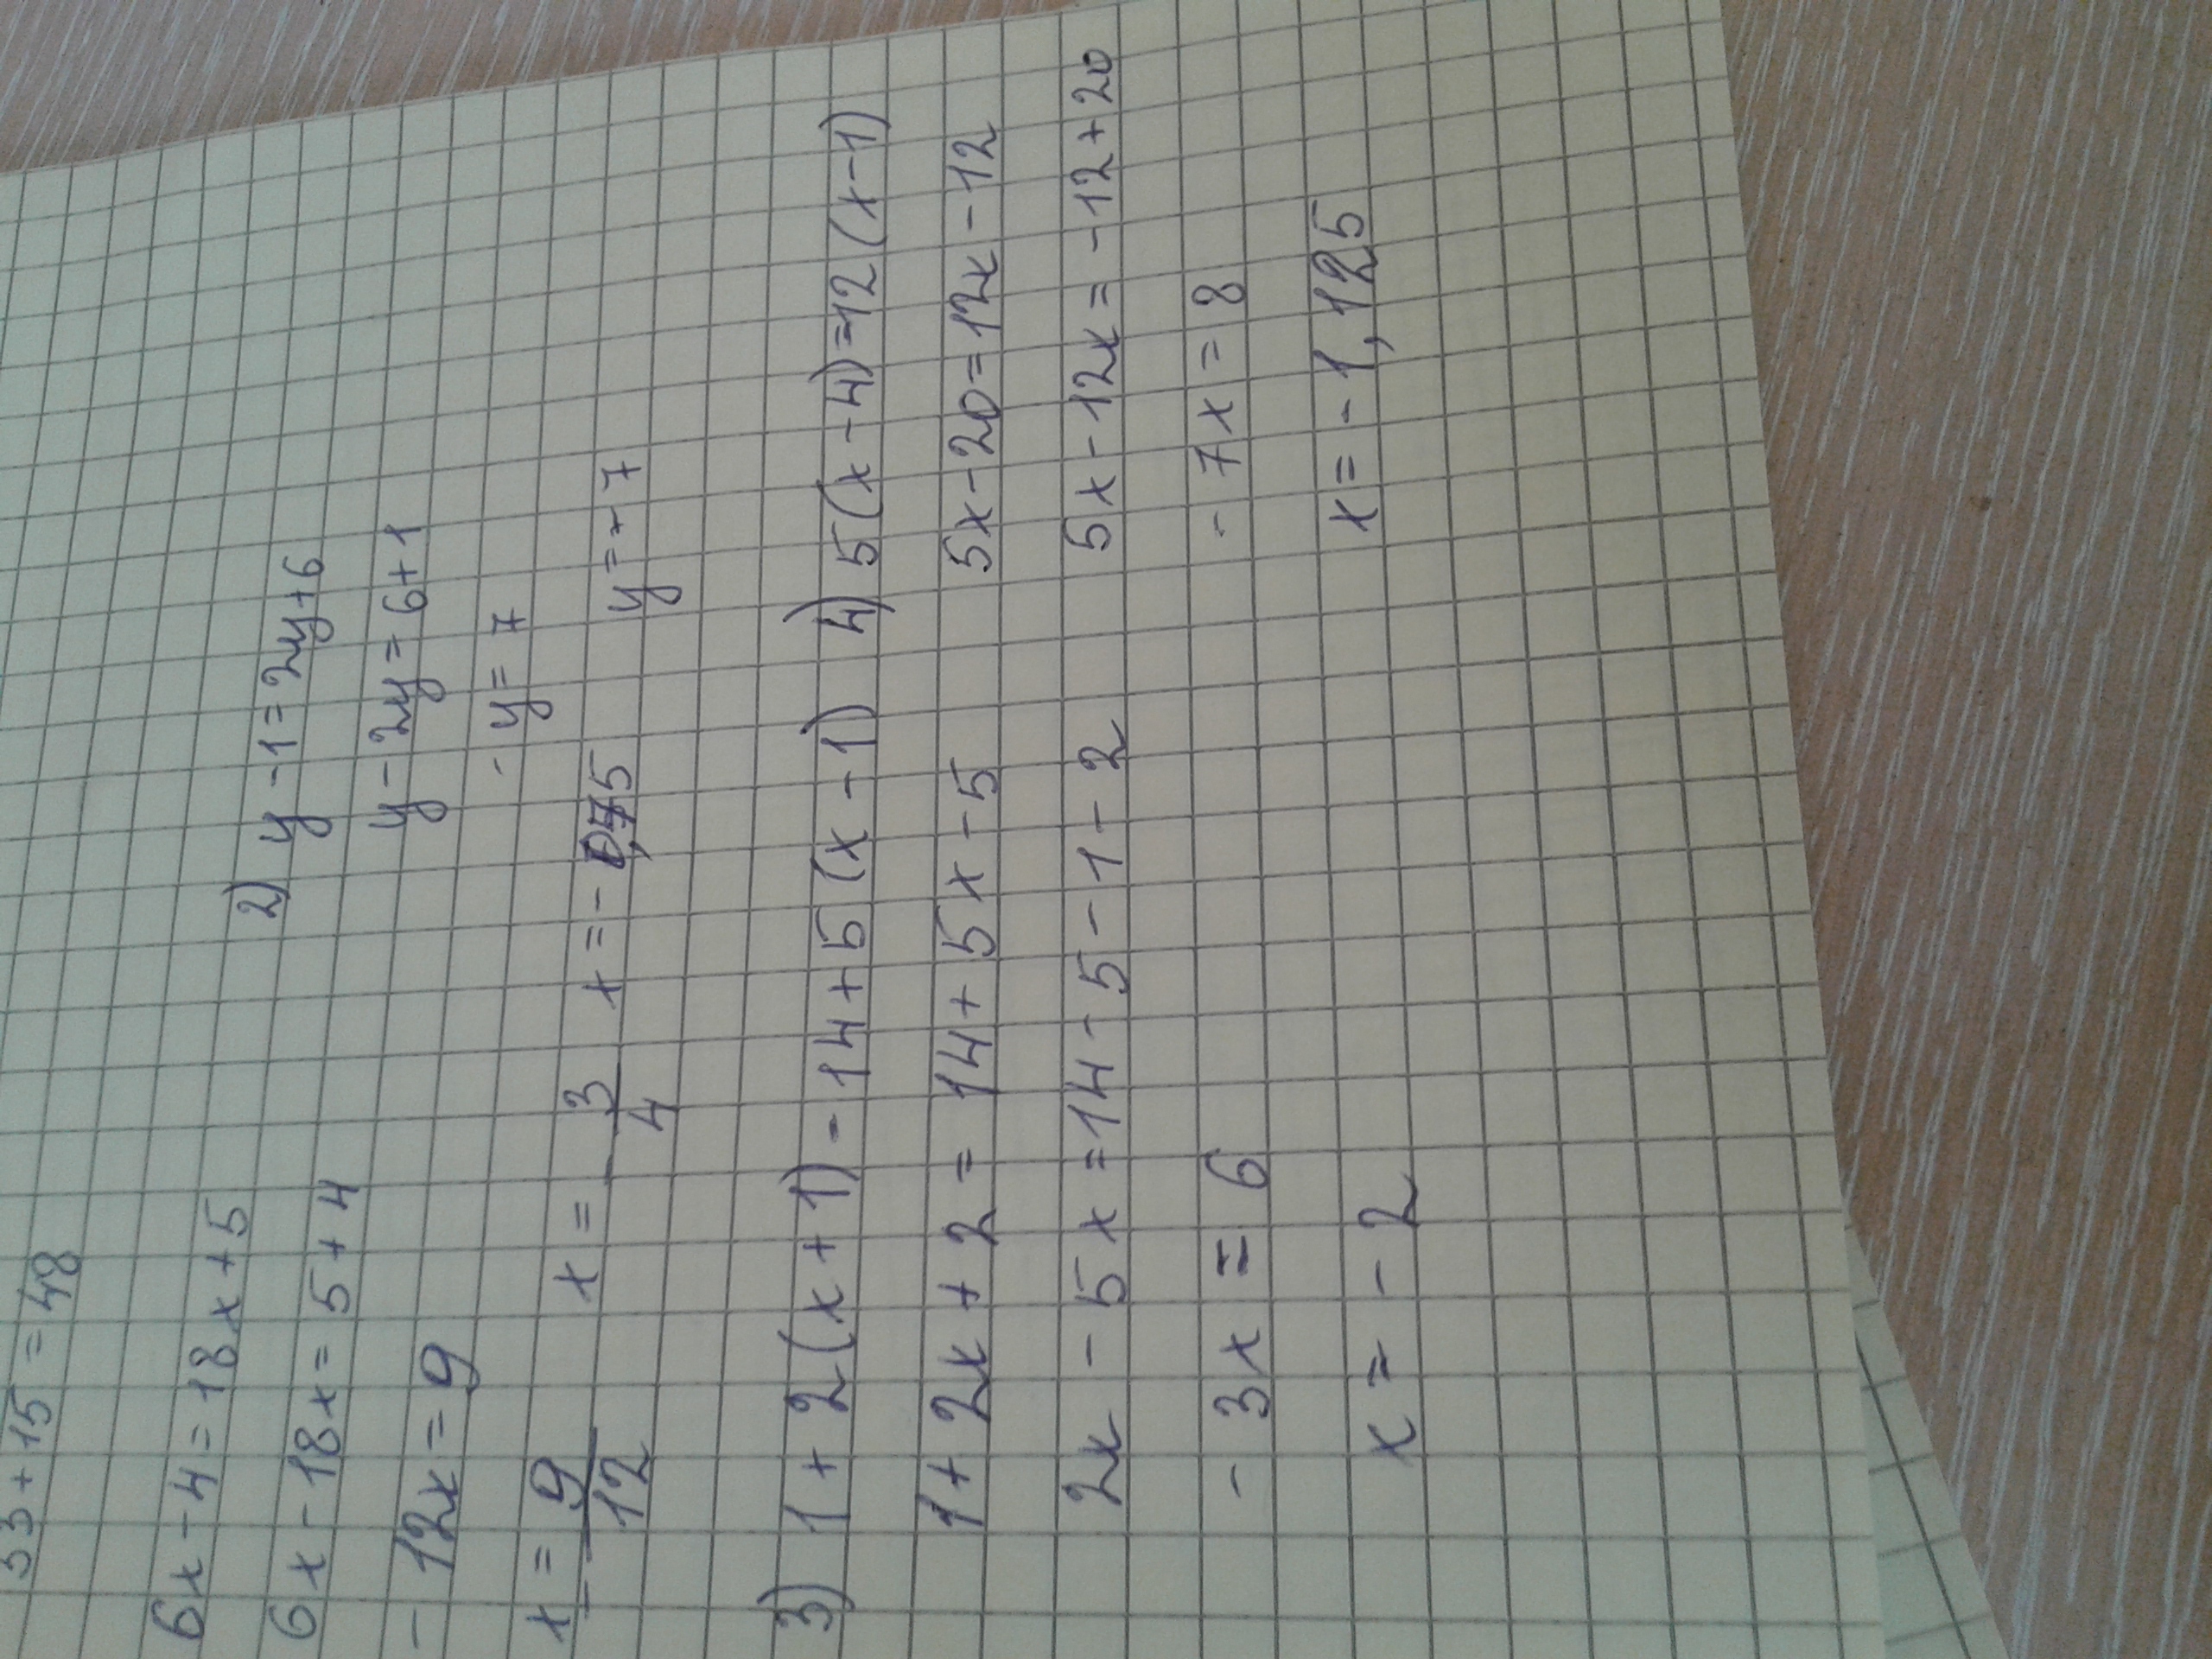 33 + 15 = 48
6x - 4 = 18x + 5
6x - 18x = 5 + 4
- 12x = 9
x = - 9/12 x = - 3/4 x = - 0,75
2) y - 1 = 2y + 6
y - 2y = 6 + 1
- y = 7
y = - 7
3) 1 + 2(x + 1) - 14 + 5(x - 1)
1 + 2x + 2 = 14 + 5x - 5
2x - 5x = 14 - 5 - 1 - 2
- 3x = 6
x = - 2
4) 5(x - 4) = 12(x - 1)
5x - 20 = 12x - 12
5x - 12x = - 12 + 20
- 7x = 8
x = - 1,125